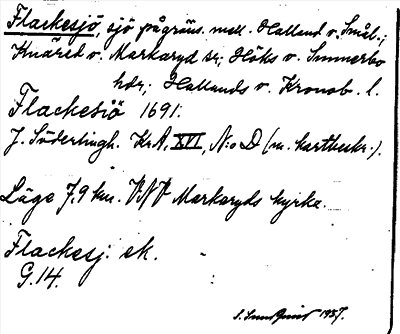 Flackesjö, sjö på gräns. mell. Halland o. Smål.;
Knäred o. Markaryd sr; Höks o. Sunnerbo
hdr; Hallands o. Kronob. l.
Flackesiö 1691.
J. Söderlingh. KrA, XVI, N:o D (m. kartbeskr.).
Läge 7,9 km. VNV Markaryds kyrka.
Flackesj. ek.
G.14.
1937.